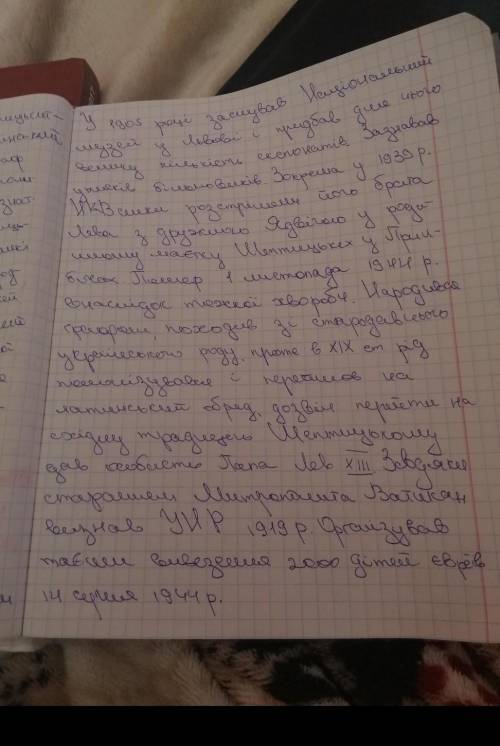 У 1905 році заснував Національний
музей у Львові і придбав для нього
велику кількість експонатів. Зазнавав
утисків більшовиків. Зокрема у 1939 р.
НКВ розстріляли його брата
Лева з дружиною Ядвігою у родин-
ному маєтку Шептицьких у Прил-
бичах. Помер 1 листопада 1944 р.
внаслідок тяжкої хвороби. Народився
графом, походив зі стародавнього
українського роду, проте в XIX ст рід
полонізувався і перейшов на
латинський обряд, дозвіл перейти на
східну традицію Шептицькому
дав особисто Папа Лев XIII. Завдяки
старанням Митрополита Ватикан
визнав УНР 1919 р. Організував
таємне вивезення 2000 дітей євреїв
14 серпня 1944 р.